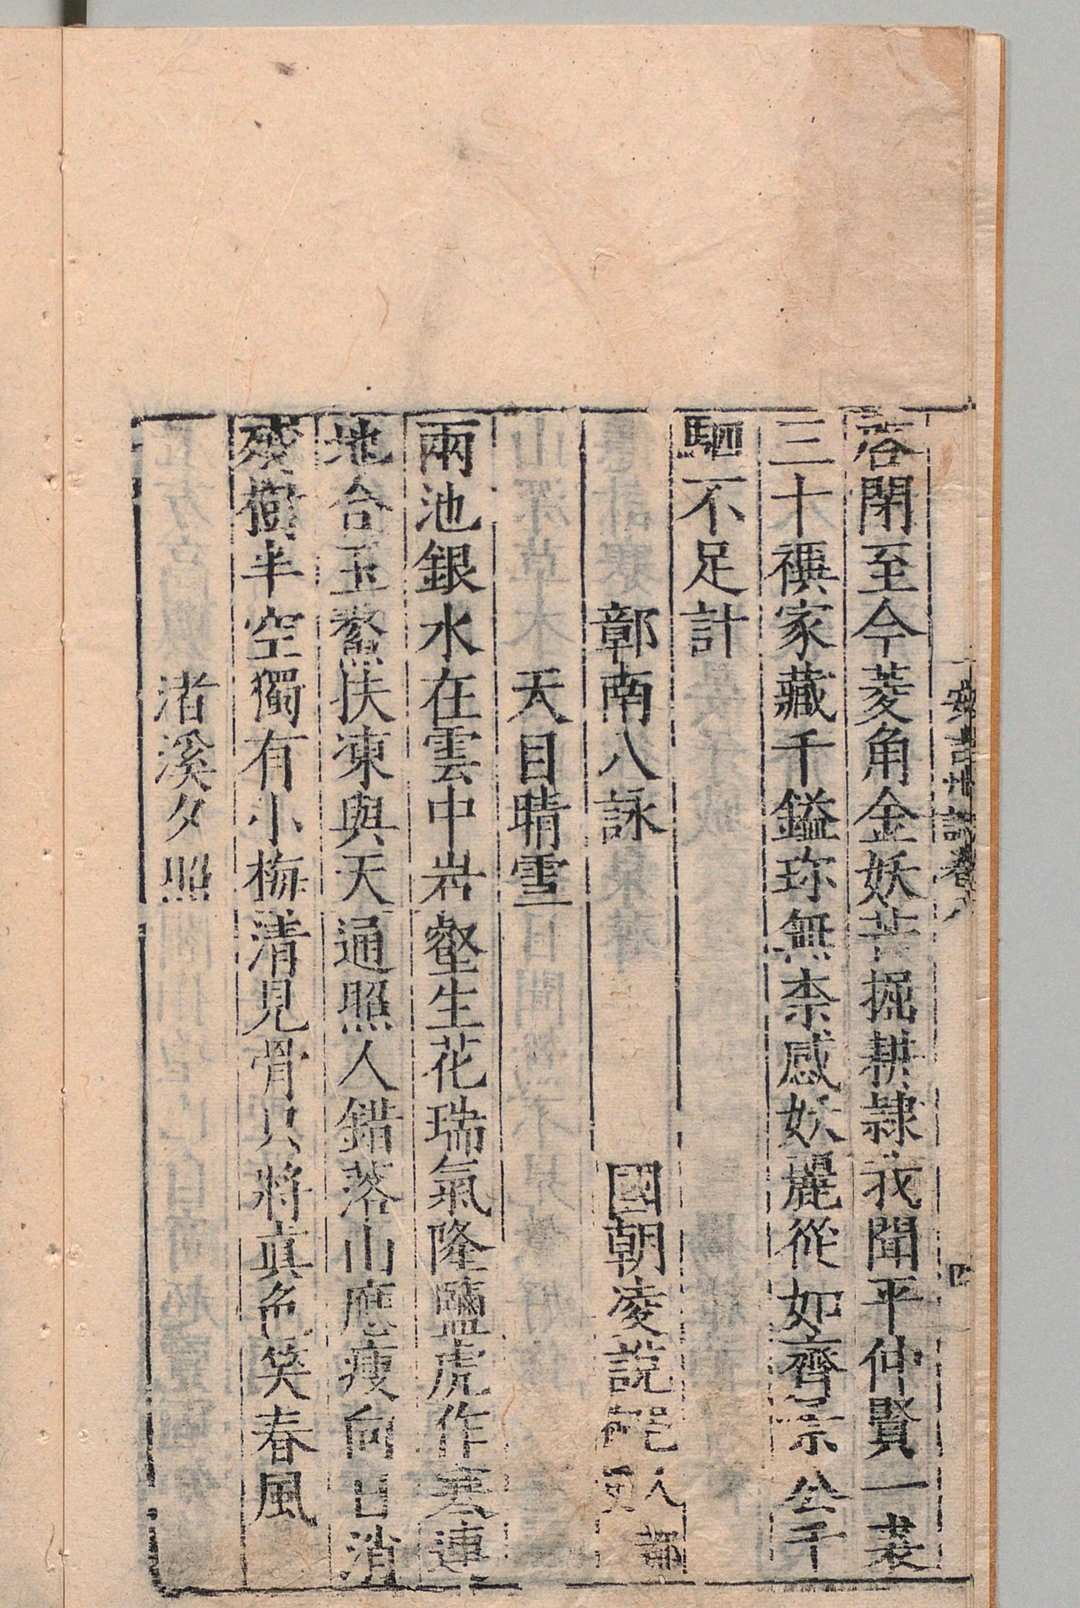 落閒至今菱角金妖耕掘耕隷我聞平仲賢一裘
三十禩家藏千鎰珎無柰感妖麗從如齊景公千
駟不足計
鄣南八詠　國朝凌說人
天目晴雪
兩池銀水在雲中岩壑生花瑞氣隆鹽虎作寒連
地合玉鰲扶凍與天通照人錯落山應瘦向日消
殘樹半空獨有小梅清見骨只將真色笑春風
渚溪夕照
安吉州誌卷八
四